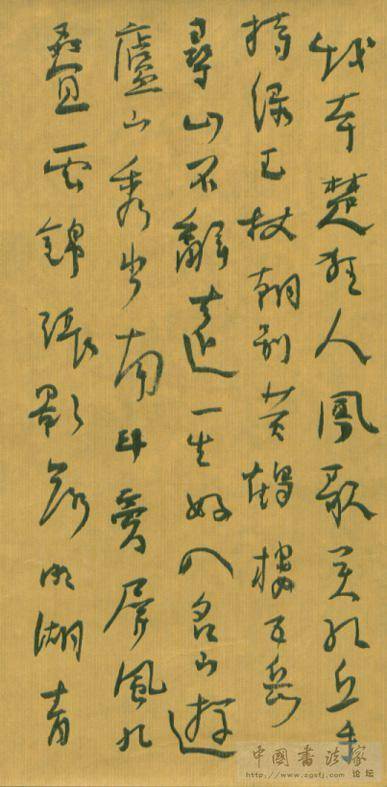 我本楚狂人鳳歌笑孔丘手
持綠玉杖朝別黃鶴樓五岳
尋山不辭遠一生好入名山遊
廬山秀出南斗旁屏風九
疊雲錦張影落明湖青
中國書法家論坛
http://www.zgsfj.com